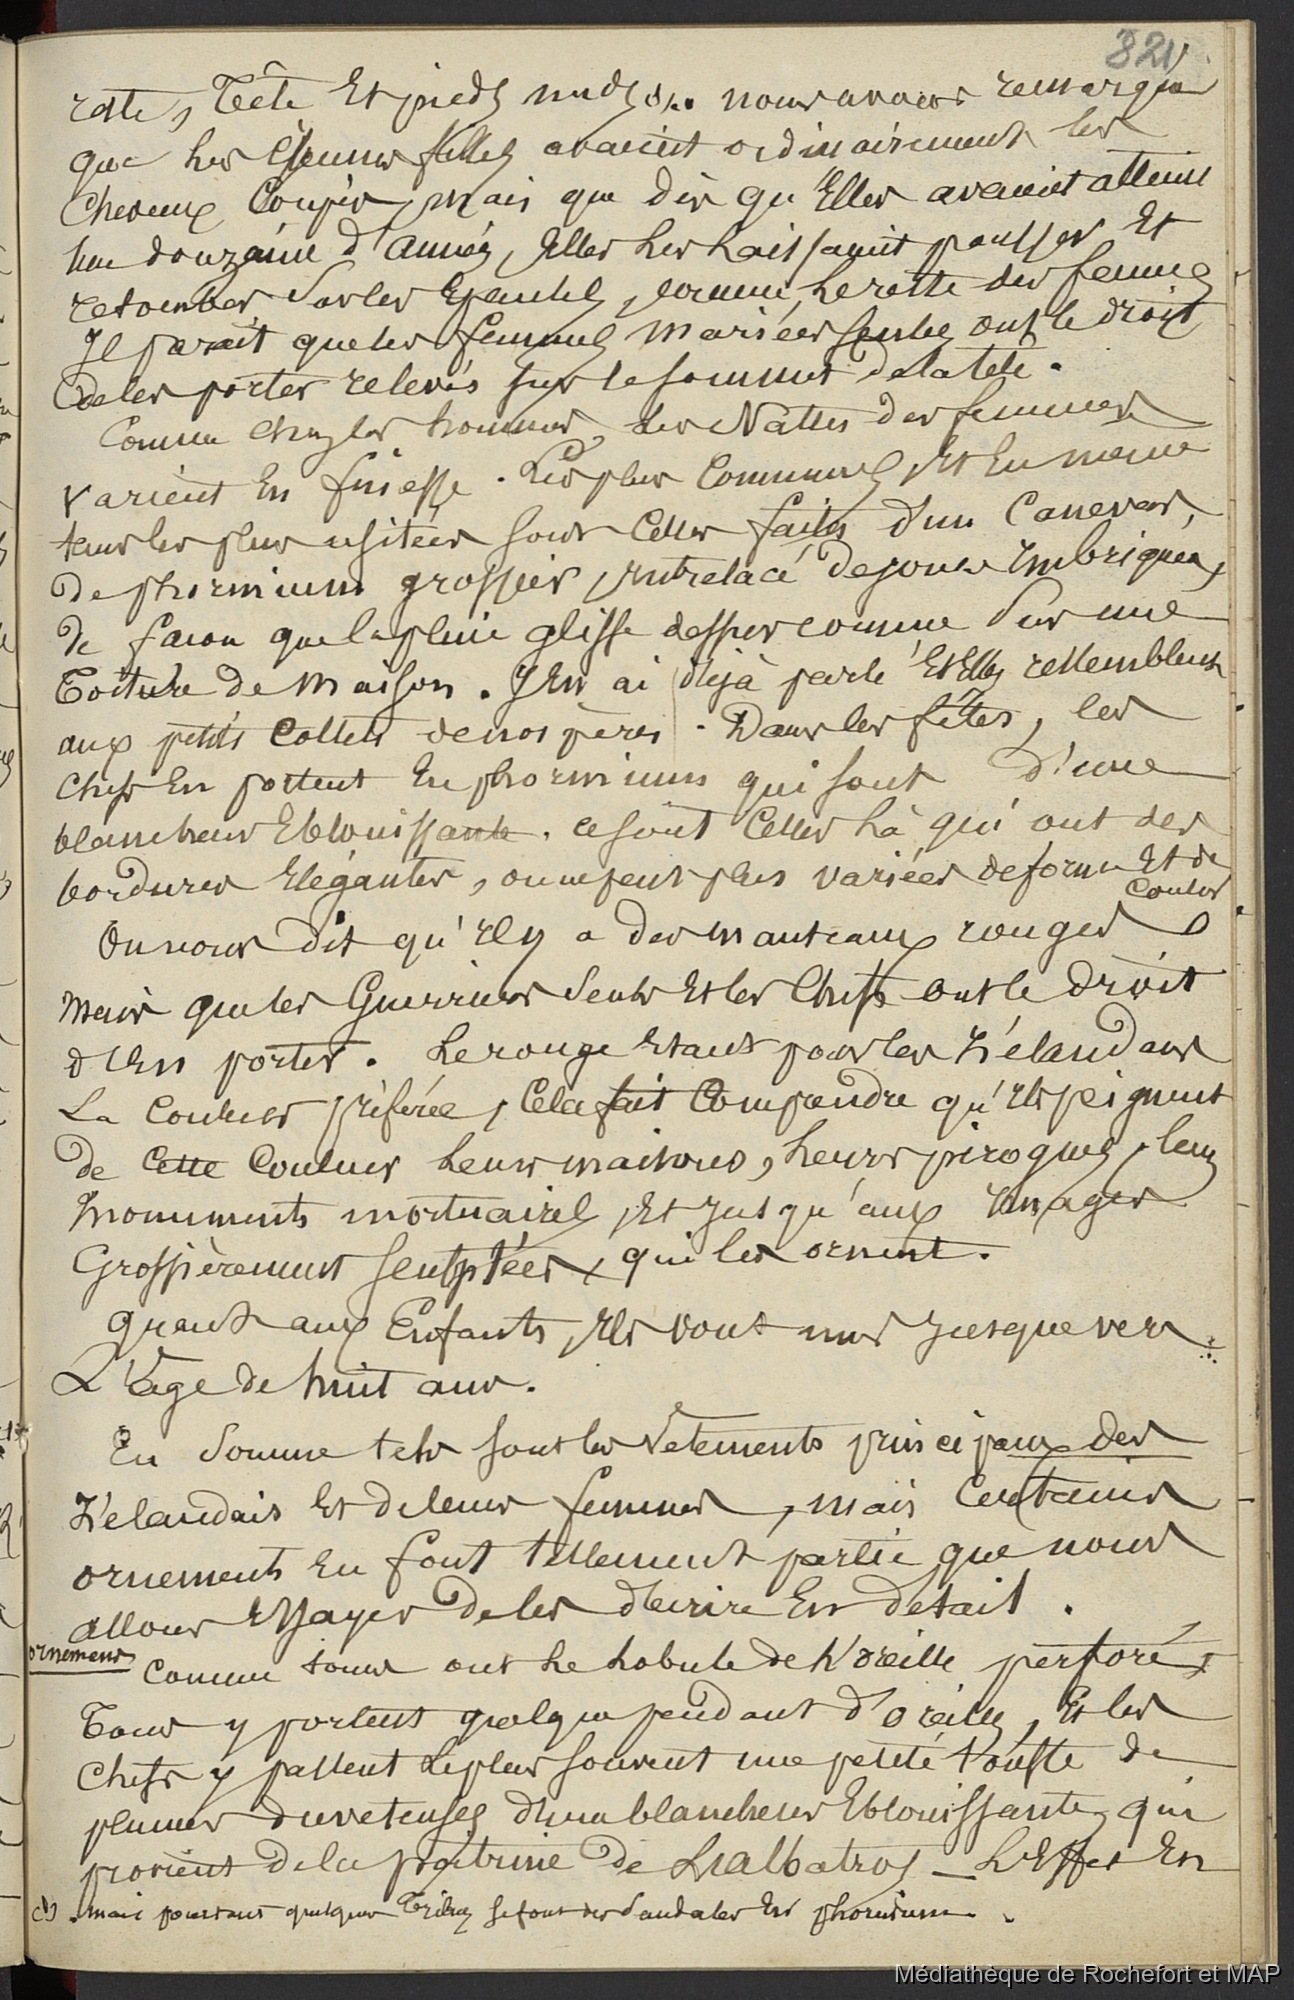 321
reste, Tête Et pieds nuds (1). nous avons remarqué
que les jeunes filles avaient ordinairement les
Cheveux Coupés, mais que dès qu'Elles avaient atteint
une douzaine d'années, Elles les laissaient pousser Et
retomber sur les Epaules, comme le reste des femmes
Il parait que les femmes mariées seules ont le droit
de les porter relevés sur le sommet de la tête.
Comme chez les hommes, les Nattes des femmes
varient En finesse. Les plus Communes, Et En même
tems les plus usitées sont Celles faites d'un Canevas,
de phormium grossier, Entrelacé de joncs Imbriqués,
de facon que la pluie glisse dessus comme sur une
Toiture de maison. J'En ai déjà parlé Et Elles ressemblent
aux petits Collets de nos pères. Dans les fêtes, les
Chefs En portent En phormium qui sont d'une
blancheur Eblouissante. ce sont Celles là qui ont des
bordures Elégantes, on ne peut plus variées de forme Et de
Couleur
On nous dit qu'Il y a des manteaux rouges
mais que les Guerriers seuls Et les Chefs ont le droit
d'En porter. Le rouge Etant pour les Zélandais
La Couleur préférée, Cela fait Comprendre qu'Ils peignent
de Cette Couleur leurs maisons, leurs pirogues, leurs
monuments mortuaires, Et jusqu'aux Images
Grossièrement sculptées, qui les ornent.
Quant aux Enfants, Ils vont nus jusque vers
L'âge de huit ans.
En somme tels sont les vêtements principaux des
Zélandais Et de leurs femmes, mais Certains
ornements En font tellement partie que nous
allons Essayer de les décrire En détail.
ornements
Comme tous ont le lobule de L'oreille perforé,
Tous y portent quelque pendant d'oreille, Et les
Chefs y passent Le plus souvent une petite touffe de
plumes duveteuses d'une blancheur Eblouissante, qui
provient de la poitrine de L'albatros _ L'Effet En
(1). mais pourtant quelques Tribus se font des sandales En phormium.
Médiathèque de Rochefort et MAP